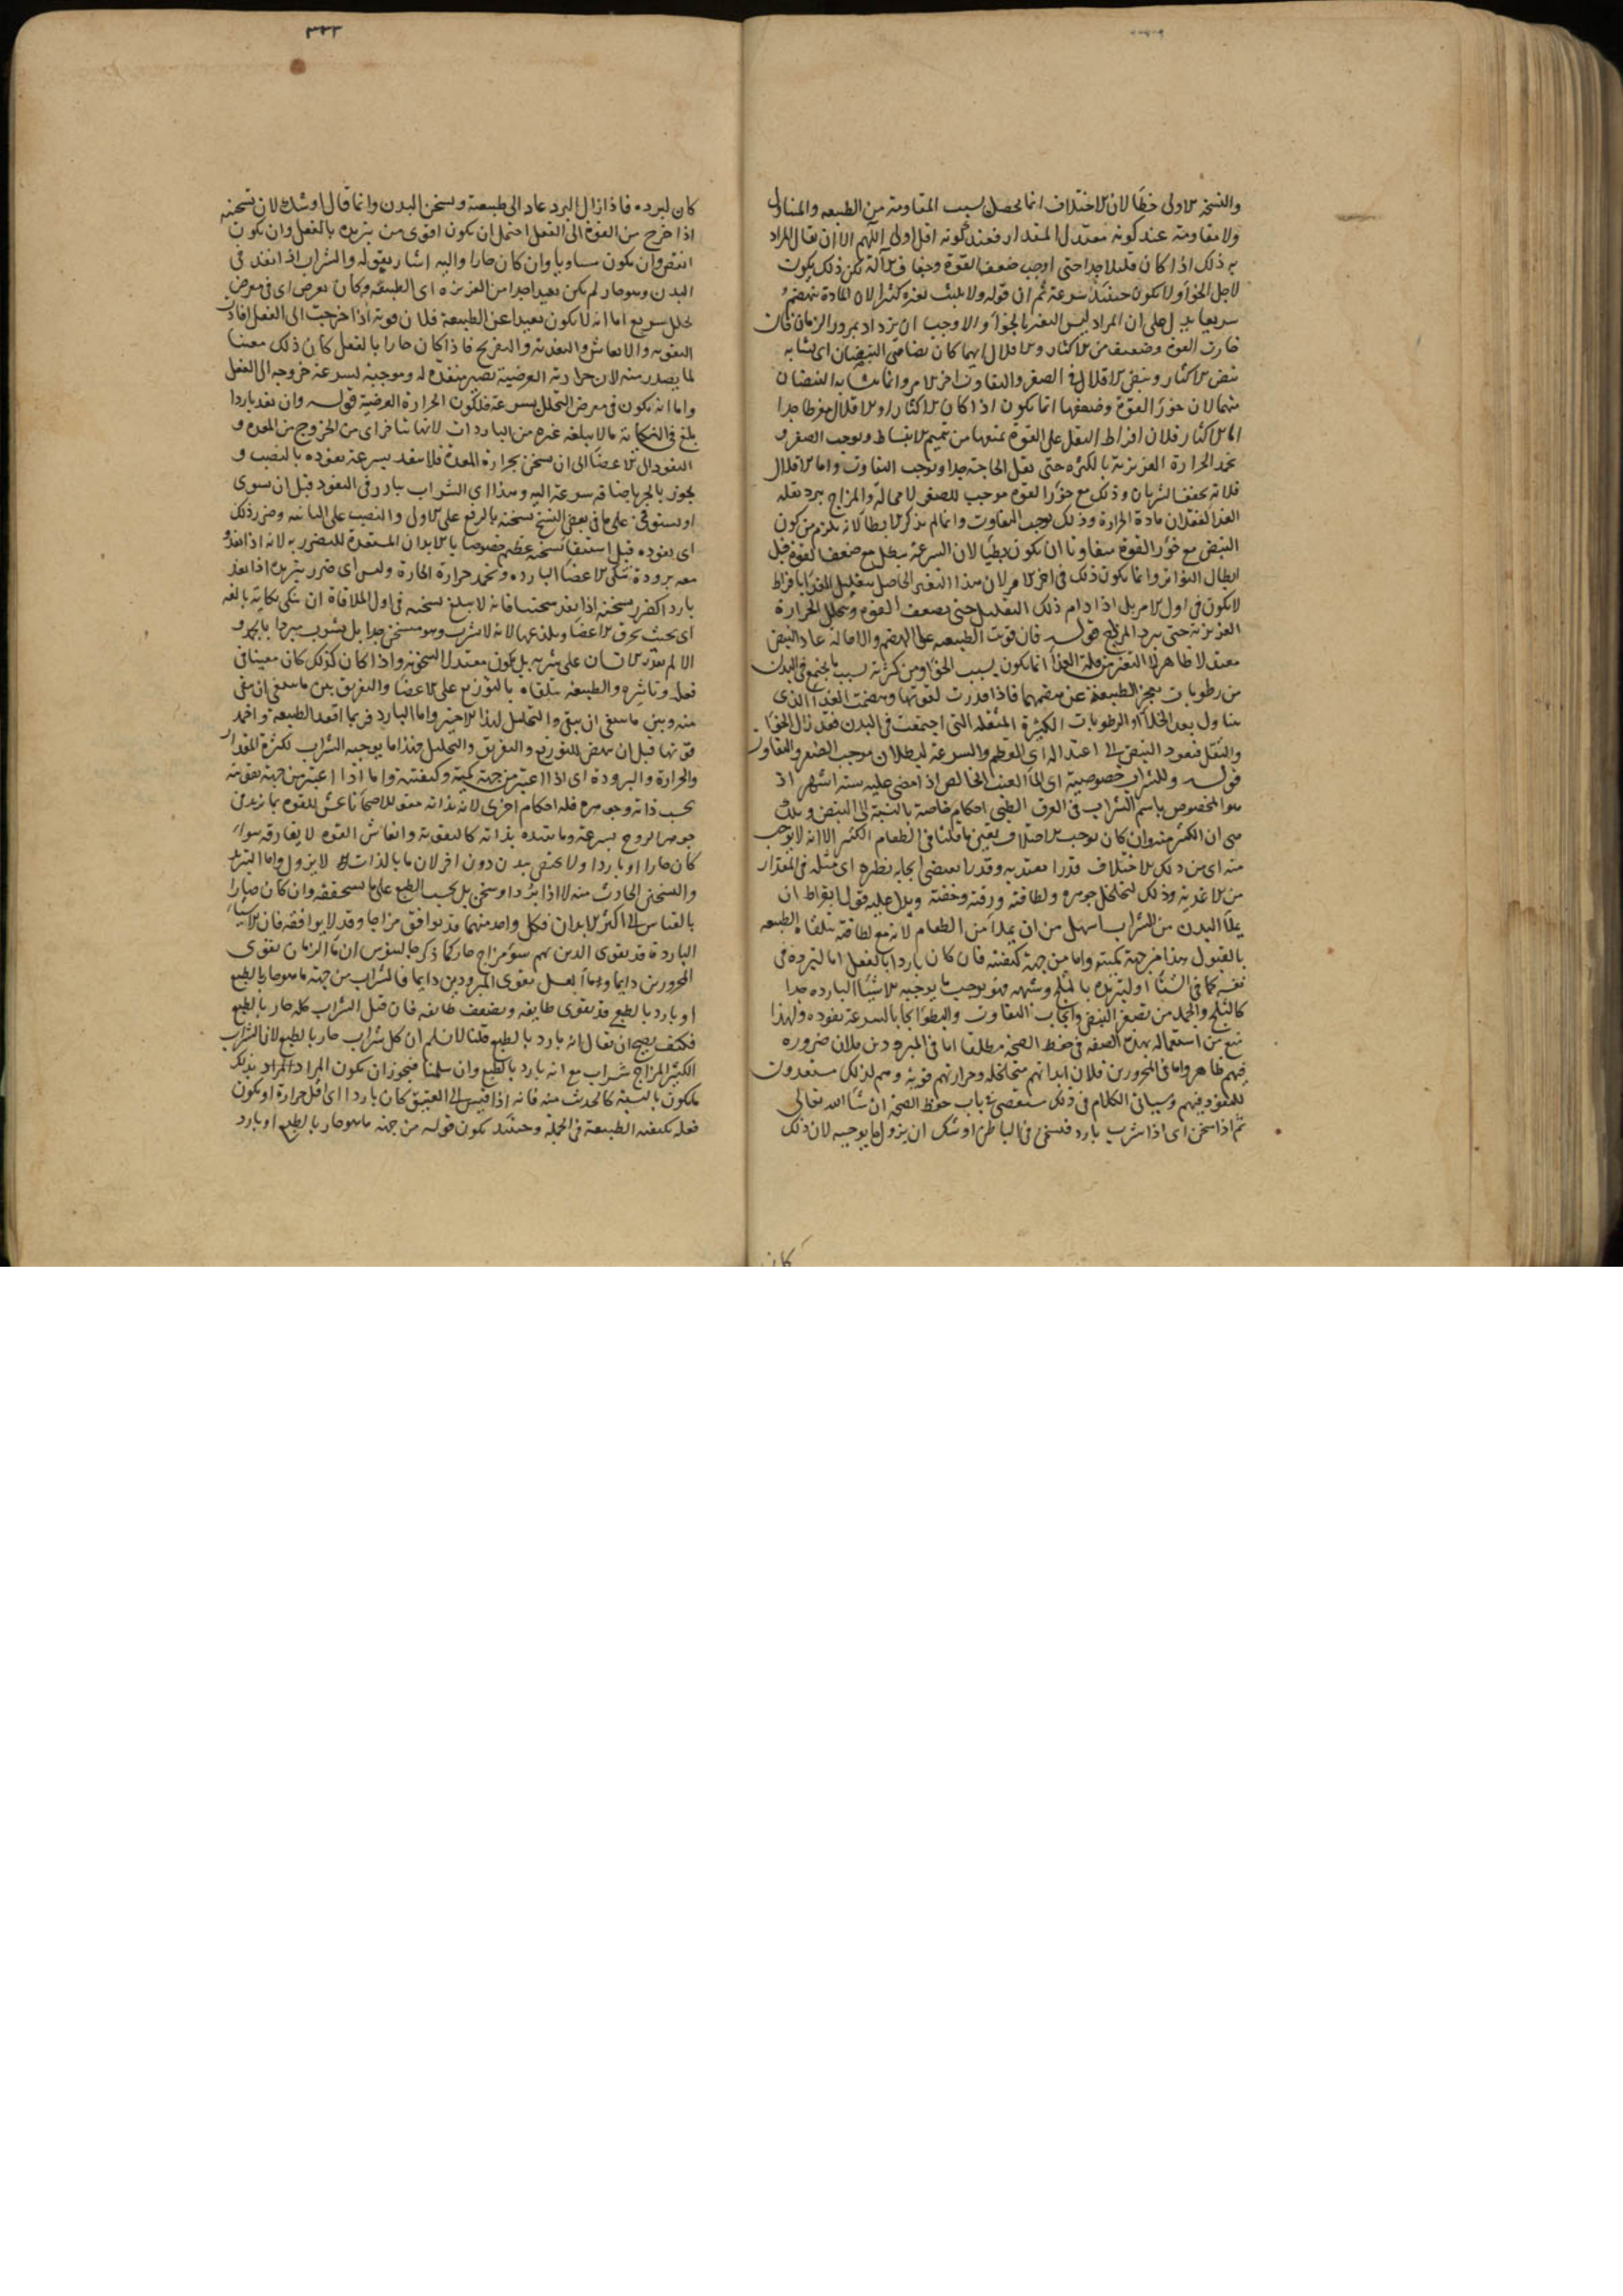 والنسخة الاولى خطأ لان الاختلاف انما يحصل بسبب المقاومة من الطبيعه والمتناول
ولا مقاومة عند كونه معتدل المقدار فعند كونه اقل اولى اللهم الا ان يقال المراد
به ذلك اذا كان قليلا جدا حتى اوجب ضعف القوة وجفاف الآلة لكن ذلك يكون
لاجل الخوا ولا يكون حينئذ سرعة ثم ان قوله ولا يلبث تغيره كثيرا لان المادة تنهضم
سريعا يدل على ان المراد ليس التغير بالخوا والا وجب ان يزداد بمرور الزمان فان
خارت القوة وضعفت من الاكثار والاقلال ايهما كان تضاهى النبضان اى تشابه
نبض الاكثار ونبض الاقلال فى الصغر والتفاوت اخر الامر وانما تشابه النبضان
منهما لان خور القوة وضعفها انما يكون اذا كان الاكثار او الاقلال مفرطا جدا
اما الاكثار فلان افراط الثقل على القوة يمنعها من تتميم الانبساط ويوجب الصغر و
يخمد الحرارة الغريزية بالكثره حتى تقل الحاجة جدا ويوجب التفاوت واما الاقلال
فلانه يجفف الشريان وذلك مع خور القوة موجب للصغر لا محالة والمزاج يبرد بقله
الغذا لفقدان مادة الحرارة وذلك يوجب التفاوت وانما لم يذكر الابطا لانه يلزم من كون
النبض مع خور القوة متفاوتا ان يكون بطيا لان السرعة تبطل مع ضعف القوة قبل
ابطال التواتر وانما يكون ذلك فى اخر الامر لان هذا التغير الحاصل بتقليل الغذا بافراط
لا يكون فى اول الامر بل اذا دام ذلك التقليل حتى تضعف القوة وتتحلل الحرارة
الغريزية حتى يبرد المزاج قوله فان قويت الطبيعه على الهضم والاحالة عاد النبض
معتدلا ظاهر لان التغير من قلة الغذا انما يكون بسبب الخوا ومن كثرته بسبب ما يجتمع فى البدن
من رطوبات تعجز الطبيعة عن هضمها فاذا قدرت لقوتها وهضمت الغذا الذى
يتناول بعد الخلا او الرطوبات الكثيرة المثقله التى اجتمعت فى البدن فقد زال الخوا
والثقل فيعود النبض الى اعتداله اى العظم والسرعة لبطلان موجب الصغر والتفاوت
قوله وللشراب خصوصية اى لماء العنب الخالص اذ امضى عليه ستة اشهر اذ
هو المخصوص باسم الشراب فى العرف الطبى احكام خاصة بالنسبة الى النبض وتلك
هى ان الكثير منه وان كان يوجب الاختلاف بعين ما قلنا فى الطعام الكثير الا انه لا يوجب
منه اى من ذلك الاختلاف قدرا معتدا به وقدرا يقتضى ايجابه نظيره اى مثله فى المقدار
من الاغذية وذلك لتخلخل جوهره ولطافته ورقته وخفته ويدل عليه قول ابقراط ان
يملأ البدن من الشراب اسهل من ان يملأ من الطعام لانه مع لطافته تتلقاه الطبيعه
بالقبول هذا من جهة كميته واما من جهة كيفيته فان كان باردا بالفعل اما لتبرده فى
نفسه كما فى الشتا او لتبريده بالثلج وشبهه فهو يوجب ما يوجبه الاشيا البارده جدا
كالثلج والجمد من تصغير النبض وايجاب التفاوت والبطوء ايجابا بالسرعة نفوذه ولهذا
منع من استعماله بهذه الصفة فى حفظ الصحة مطلقا اما فى المبرودين فلان ضروره
فيهم ظاهر واما فى المحرورين فلان ابدانهم متخلخله وحرارتهم قوية وهم لذلك مستعدون
للنفوذ فيهم وسياتى الكلام فى ذلك مستقصى فى باب حفظ الصحة ان شاء الله تعالى
ثم اذا سخن اى اذا شرب بارد فسخن فى الباطن اوشك ان يزول ما يوجبه لان ذلك
كان
٣٣٣
كان لبرده فاذا زال البرد عاد الى طبيعته ويسخن البدن وانما قال اوشك لان تسخينه
اذا خرج من القوة الى الفعل احتمل ان يكون اقوى من تبريده بالفعل وان يكون
انقص وان يكون مساويا وان كان حارا واليه اشار بقوله والشراب اذا نفذ فى
البدن وهو حار لم يكن بعيدا جدا من الغريزه اى الطبيعه وكان بعرض اى فى معرض
تحلل سريع اما انه لا يكون بعيدا عن الطبيعة فلان قوته اذا خرجت الى الفعل افادت
التقويه والانعاش والتغذية والتفريح فاذا كان حارا بالفعل كان ذلك معينا
لما يصدر منه لان حرارته العرضية تصير منفذه له وموجبة لسرعة خروجه الى الفعل
واما انه يكون فى معرض التحلل بسرعة فلكون الحرارة العرضية قوله وان نفذ باردا
بلغ فى النكاية ما لا يبلغه غيره من الباردات لانها تتاخر اى من الخروج من المعده و
النفوذ الى الاعضا الى ان تسخن بحرارة المعدة فلا تنفذ بسرعة نفوذه بالنصب و
يجوز بالجر باضافه سرعة اليه وهذا اى الشراب يبادر فى النفوذ قبل ان يستوى
او يستوفى على ما فى بعض النسخ تسخنه بالرفع على الاول والنصب على الثانيه وضرر ذلك
اى نفوذه قبل استيفا تسخنه عظيم خصوصا بالابدان المستعدة للتضرر به لانه اذا نفذ و
معه برودة تنكى الاعضا البارده وتخمد حرارة الحارة وليس اى ضرر تبريده اذا نفذ
باردا كضرر تسخينه اذا نفذ سخينا فانه لا يبلغ تسخينه فى اول الملاقاة ان ينكى نكاية بالغه
اى بحيث تحرق الاعضا ويلذعها لانه لا يشرب وهو مسخن جدا بل يشرب مبردا بالجمد و
الا لم يقدر الانسان على شربه بل يكون معتدل السخونة واذا كان كذلك كان معينا فى
فعله وتاثيره والطبيعه تتلقاه بالتوزيع على الاعضا والتفريق بين ما ينبغى ان يبقى
منه وبين ما ينبغى ان ينقى والتحليل لهذا الاخير واما البارد فربما اقعد الطبيعة واخمد
قوتها قبل ان تنهض للتوزيع والتفريق والتحليل فهذا ما يوجبه الشراب لكثرة المقدار
والحرارة والبرودة اى اذا اعتبر من جهة كميته وكيفيته واما اذا اعتبر من جهة تقويته
بحسب ذاته وجوهره فله احكام اخرى لانه بذاته مقو للاصحا ناعش للقوه بما يزيد فى
جوهر الروح بسرعة وما يفيده بذاته كالتقوية وانعاش القوه لا يفارقه سواء
كان حارا او باردا ولا يختص ببدن دون اخر لان ما بالذات لا يزول واما التبريد
والتسخين الحادث منه لا اذا برد او سخن بل بحسب الطبع على ما يستحققه وان كان ضارا
بالقياس الى اكثر الابدان فكل واحد منهما قد يوافق مزاجا وقد لا يوافقه فان الاشياء
الباردة قد تقوى الذين بهم سوء مزاج حار كما ذكر جالينوس ان ماء الرمان يقوى
المحرورين دايما وماء العسل يقوى المبرودين دايما فالشراب من جهة ما هو حار بالطبع
او بارد بالطبع قد يقوى طايفه ويضعف طايفه فان قيل الشراب كله حار بالطبع
فكيف يصح ان يقال انه بارد بالطبع قلنا لا نسلم ان كل شراب حار بالطبع لان الشراب
الكثير المزاج شراب مع انه بارد بالطبع وان سلمنا فيجوز ان يكون المراد المراد بذلك
ما يكون بالنسبة كالحديث منه فانه اذا قيس الى العتيق كان باردا اى اقل حرارة او يكون
فعله بكيفيته الطبيعة فى الجملة وحينئذ يكون قوله من جهة ما هو حار بالطبع او بارد